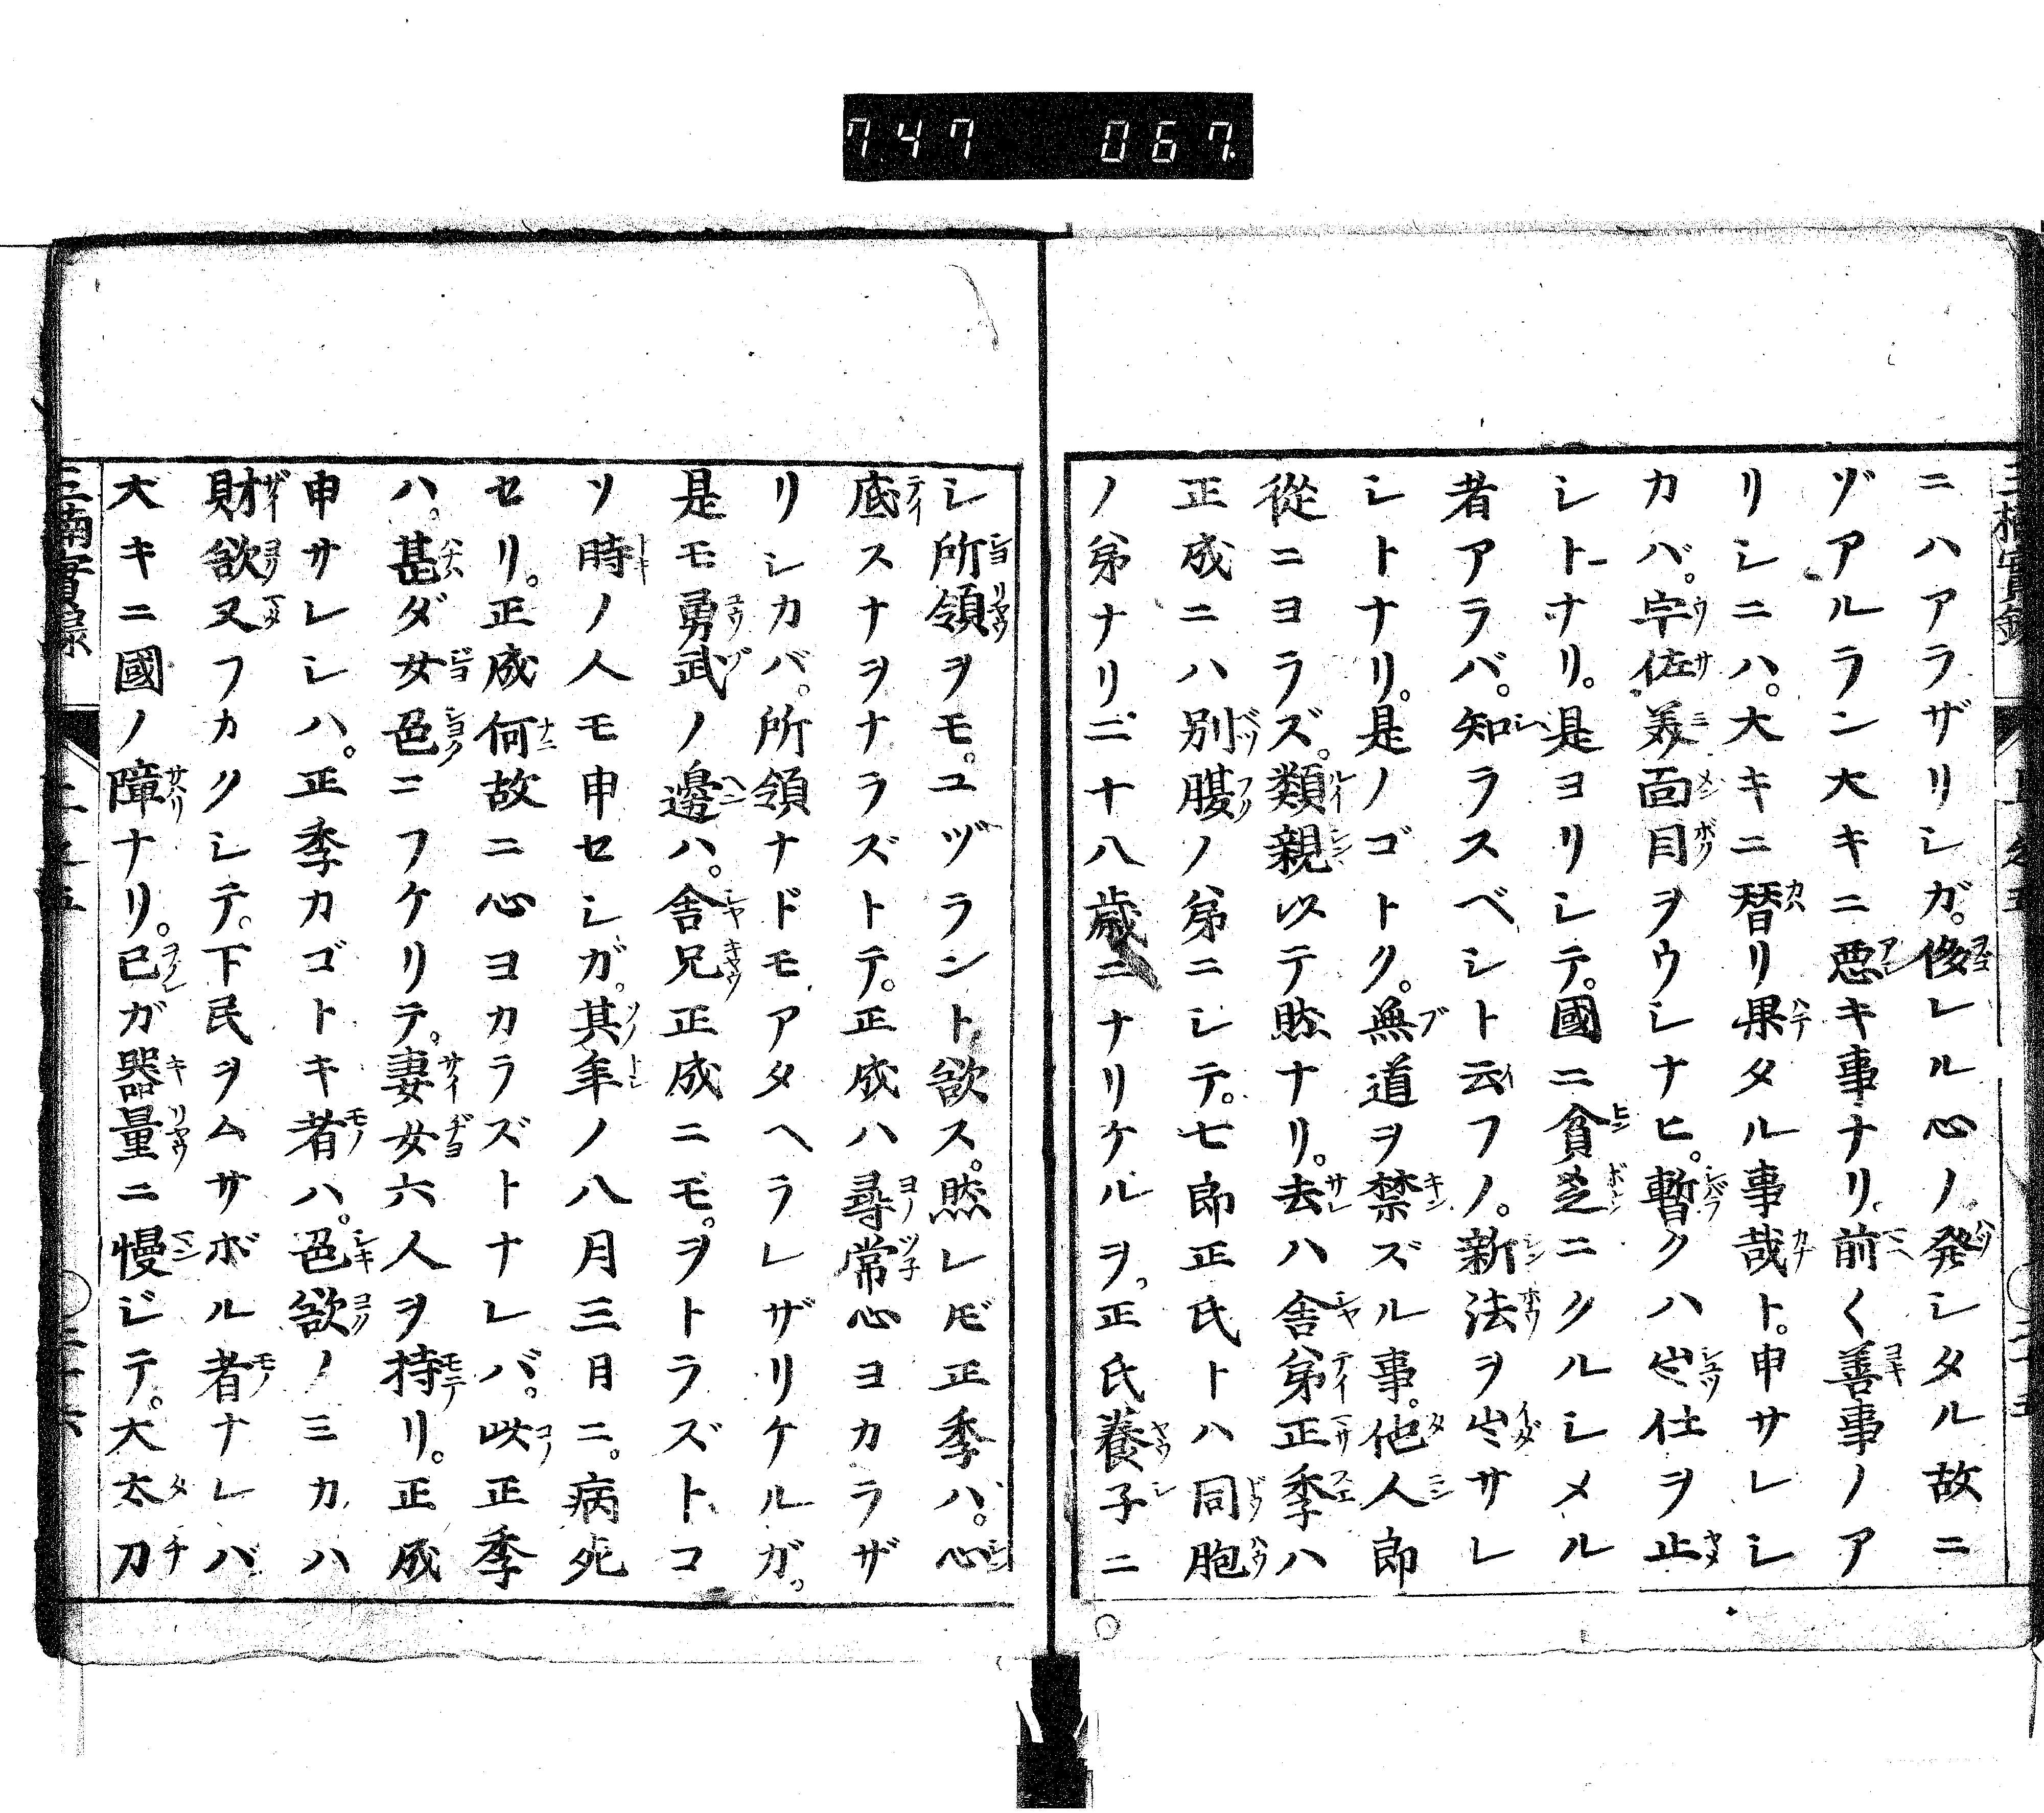 747 067
ニハアラザリシガ。侈レル心ノ発シタル故ニ
ヅアルラン大キニ悪キ事ナリ。前〱善事ノア
リシニハ。大キニ替リ果タル事哉ト。申サレシ
カバ。宇佐美面目ヲウシナヒ。暫クハ出仕ヲ止
シトナリ。是ヨリシテ。國ニ貧乏ニクルシメル
者アラバ。知ラスベシト云フノ。新法ヲ出サレ
シトナリ。是ノゴトク。無道ヲ禁ズル事。他人郎
從ニヨラズ。類親以テ然ナリ。去ハ舎弟正季ハ
正成ニハ別腹ノ弟ニシテ。七郎正氏トハ同胞
ノ弟ナリ。二十八歳ニナリケルヲ。正氏養子ニ
シ所領ヲモ。ユヅラント欲ス。然レ𪜈正季ハ。心
底スナヲナラズトテ。正成ハ尋常心ヨカラザ
リシカバ。所領ナドモアタヘラレザリケルガ。
是モ勇武ノ邊ハ。舎兄正成ニモ。ヲトラズトコ
ソ時ノ人モ申セシガ。其年ノ八月三日ニ。病死
セリ。正成何故ニ心ヨカラズトナレバ。此正季
ハ。甚ダ女色ニフケリテ。妻女六人ヲ持リ。正成
申サレシハ。正季カゴトキ者ハ。色欲ノミカハ
財欲又フカクシテ。下民ヲムサボル者ナレバ
大キニ國ノ障ナリ。已ガ器量ニ慢ジテ。大太刀